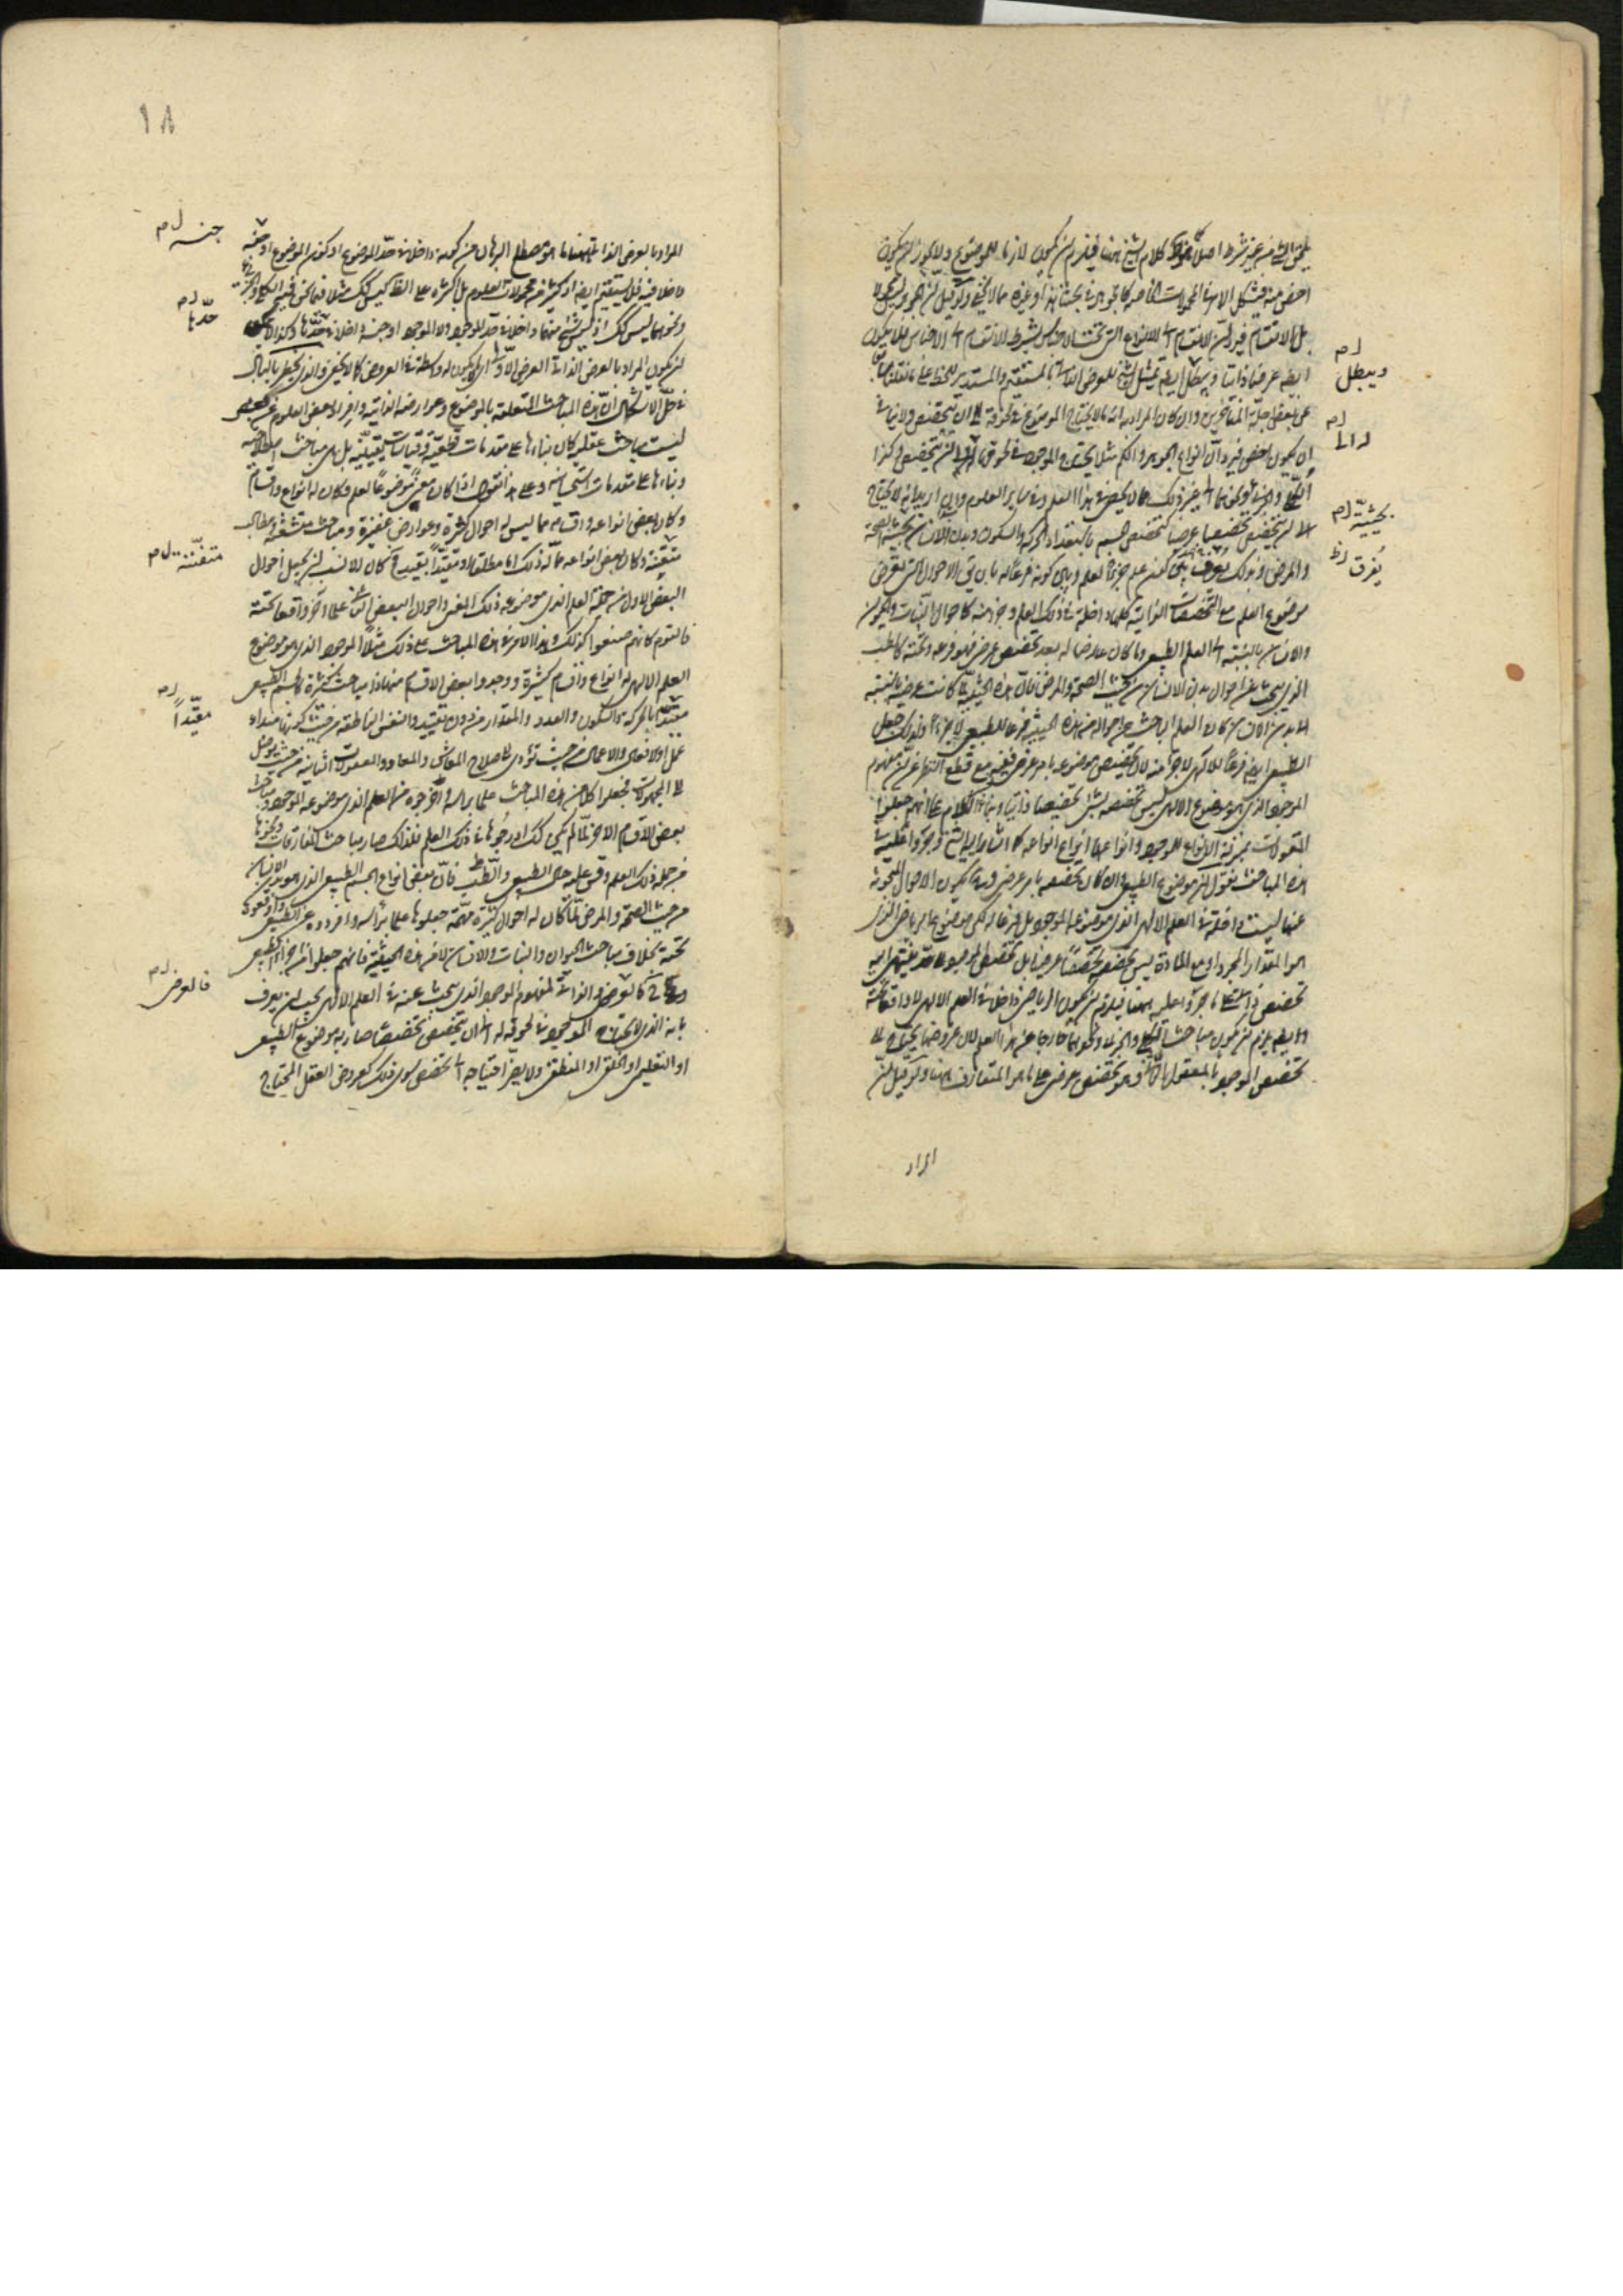 يلحق الشيء من غير شرط اصلا كلام الشيخ ههنا فيلزم ان يكون لازما للموضوع ولا يجوز ان يكون
اخص منه فيشكل الامر في المحمولات الخاصة كالجوهر في بحثنا هذا وغيره مما لا يخفى ولو قيل ان الجوهر ليس محمولا
بل الانقسام فيرد ان الانقسام الى الانواع التي تحت الاجناس بشرط الانقسام الى الاجناس فلا يكون
ايضا عرضا ذاتيا ويبطل ايضا تمثيل الشيخ للعرض الذاتي بالمستقيم والمستدير للخط على ما نقلنا سابقا
عن بعض جلة المتأخرين وان كان المراد به انه ما لا يحتاج الموضوع في لحوقه الى ان يتخصص ولا ينافي
ان يكون اخص فيرد ان انواع الجوهر والكم مثلا يحتاج الموجود في لحوقها الى ان يتخصص وكذا
الكلي والجزئي ونحوهما الى غير ذلك مما لا يحصى في هذا العلم وفي سائر العلوم وان اريد انه لا يحتاج
الى ان يتخصص تخصصا عرضيا كتخصص الجسم باستعداد الحركة والسكون وبدن الانسان بحيثية الصحة
والمرض وبذلك يعرف بين كون علم جزءا لعلم وبين كونه فرعا له بان يقال الاحوال التي تعرض
موضوع العلم مع التخصصات الذاتية كلها داخلة في ذلك العلم وجزء منه كاحوال النبات والحيوان
والانسان بالنسبة الى العلم الطبيعي وما كان عارضا له بعد تخصص عرضي فهو فرعه وتحته كالطب
الذي يبحث عن احوال بدن الانسان من حيث الصحة والمرض فان هذه الحيثية لما كانت عرضية بالنسبة
الى بدن الانسان كان العلم الباحث عن احواله من هذه الحيثية فرعا للطبيعي لا جزءا ولذلك جعل
الطبيعي ايضا فرعا للالهي لا جزءا منه لان تخصيص موضوعه بامر عرضي ففيه مع قطع النظر عن ان مفهوم
الموجود الذي هو موضوع الالهي ليس تخصصه بشيء تخصيصا ذاتيا وبناء الكلام على انهم جعلوا
المقولات بمنزلة الانواع للموجود وانواعها انواع انواعه كما اشار اليه الشيخ وجزوا عليه في
هذه المباحث نقول ان موضوع الطبيعي وان كان تخصصه بامر عرضي وبه يكون الاحوال المبحوث
عنها ليست داخلة في العلم الالهي الذي موضوعه الموجود بل فرعا له لكن موضوع الرياضي الذي
هو المقدار المجرد او مع المادة ليس تخصصه تخصصا عرضيا بل تخصص الموجود به قد ينتهي الى
تخصص ذاتي على ما جروا عليه ههنا فيلزم ان يكون الرياضي داخلا في العلم الالهي لا واقعا تحته
وايضا يلزم ان يكون مباحث الكلي والجزئي ونحوهما خارجا عن هذا العلم لان عروضها يحتاج الى
تخصص الموجود بالمعقول الثاني وهو تخصص عرضي على ما هو المتعارف ههنا ولو قيل ان
المراد
ويبطل ل م
بحيثية ل م
يفرق ل ظ
١٨
المراد بالعرض الذاتي ههنا ما هو مصطلح البرهان من كونه داخلا في حد الموضوع او كون الموضوع او جنسه
داخلا فيه فلا يستقيم ايضا اذ كثير من محمولات العلوم بل اكثره على الظاهر ليس كذلك مثلا فيما نحن فيه الكلي والجزئي
ونحوهما ليس كذلك اذ ليس شيء منهما داخلا في حد الموجود ولا الموجود او جنسه داخلا في حدها وكذا لا يمكن
ان يكون المراد بالعرض الذاتي العرض الاولي اي ما لا يكون له واسطة في العروض كما لا يخفى والذي يخطر بالبال
في حل الاشكال ان هذه المباحث المتعلقة بالموضوع وعوارضه الذاتية وافراد بعض العلوم عن بعض
ليست مباحث عقلية كان بناءها على مقدمات قطعية وقياسات يقينية بل هي مباحث اصطلاحية
وبناءها على مقدمات استحسانية وعلى هذا نقول اذا كان معنى موضوعا لعلم وكان له انواع واقسام
وكان لبعض انواعه واقسامه مما ليس له احوال كثيرة وعوارض غفيرة ومباحث متشعبة ومطالب
متفننة وكان بعض انواعه مما له ذلك اما مطلقا او مقيدا بقيد كان الانسب ان يجعل احوال
البعض الاول من جملة العلم الذي موضوعه ذلك المعنى واحوال البعض الثاني علما آخر واقعا تحته
فالقوم كانهم صنعوا كذلك وبنوا الامر في هذه المباحث على ذلك مثلا الموجود الذي هو موضوع
العلم الالهي له انواع واقسام كثيرة ووجدوا بعض الاقسام منها ذا مباحث كثيرة كالجسم الطبيعي
مقيدا بالحركة والسكون والعدد والمقدار من دون تقييد والنفس الناطقة من حيث كونها مبدأ
عمل او الافعال والاعمال من حيث تؤدي الى صلاح المعاش والمعاد والمعقولات الثانية من حيث يوصل
الى المجهولات فجعلوا كلا من هذه المباحث علما براسه واخرجوه من العلم الذي موضوعه الموجود ومباحث
بعض الاقسام الاخر لما لم يكن كذلك ادرجوها في ذلك العلم فلذلك صار مباحث المفارقات ونحوها
من جملة ذلك العلم وقس عليه حال الطبيعي والطب فان بعض انواع الجسم الطبيعي الذي هو بدن الانسان
من حيث الصحة والمرض لما كان له احوال كثيرة مهمة جعلوها علما براسه وافردوه عن الطبيعي واوقعوه
تحته بخلاف مباحث الحيوان والنبات والانسان لا من هذه الحيثية فانهم جعلوها من اجزاء الطبيعي
كالعرض الذاتي لمفهوم الموجود الذي يبحث عنه في العلم الالهي يجب ان يعرف
بانه الذي لا يحتاج الموجود في لحوقه له الى ان يتخصص تخصصا صار به موضوع الطبيعي
او التعليمي او الخلقي او المنطقي ولا يضر احتياجه الى تخصص سوى ذلك كعروض العقل المحتاج
جنسه ل م
حدها ل م
متفننة ل م
مقيدا ل م
فالعرض ل م